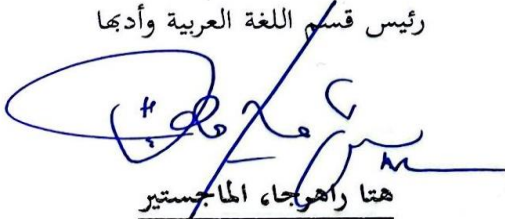 رئيس قسم اللغة العربية وأدبها
هتا راهرجا، الماجستير